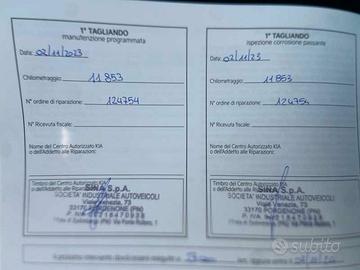 1° TAGLIANDO
manutenzione programmata
Data: 02/11/2023
Chilometraggio: 11 853
N° ordine di riparazione: 124754
N° Ricevuta fiscale:
Nome del Centro Autorizzato KIA
o dell'Addetto alle Riparazioni:
Timbro del Centro Autorizzato KIA
SINA S.p.A.
SOCIETA' INDUSTRIALE AUTOVEICOLI
Viale Venezia, 73
33170 PORDENONE (PN)
1° TAGLIANDO
ispezione corrosione passante
Data: 02/11/23
Chilometraggio: 11 853
N° ordine di riparazione: 124754
N° Ricevuta fiscale:
Nome del Centro Autorizzato KIA
o dell'Addetto alle Riparazioni:
Timbro del Centro Autorizzato KIA
SINA S.p.A.
SOCIETA' INDUSTRIALE AUTOVEICOLI
Viale Venezia, 73
33170 PORDENONE (PN)
subito